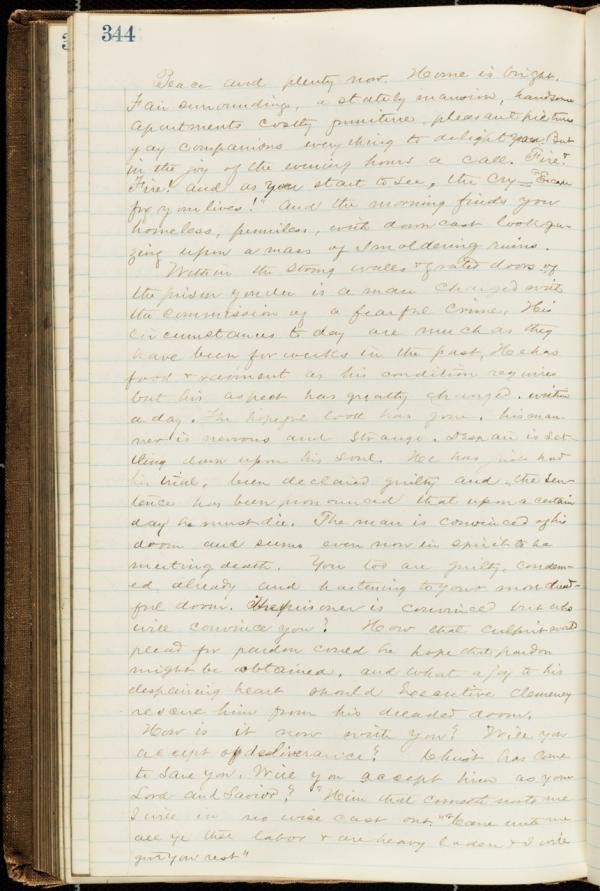 344
Peace and plenty now. Home is bright.
Fair surroundings, a stately mansion, handsome
apartments costly furniture, pleasant pictures
gay companions everything to delight you. But
in the joy of the evening hours a call. Fire!
Fire! and as you start to see, the cry "Escape
for your lives!" And the morning finds you
homeless, penniless, with down cast look ga-
zing upon a mass of smoldering ruins.
Within the strong walls & grated doors of
the prison yonder is a man charged with
the commission of a fearful crime. His
circumstances to day are much as they
have been for weeks in the past, He has
food & raiment as his condition requires
but his aspect has greatly changed within
a day. The hopeful look has gone, his man-
ner is nervous and strange. Despair is set-
tling down upon his soul. He has just had
his trial, been declared guilty and the sen-
tence has been pronounced that upon a certain
day he must die. The man is convinced of his
doom and seems even now in spirit to be
meeting death. You too are guilty, condem-
ed already and hastening to your most dread-
ful doom. The prisoner is convinced but who
will convince you? How that culprit would
plead for pardon could he hope that pardon
might be obtained, and what a joy to his
despairing heart should Executive clemency
rescue him from his dreaded doom.
How is it now with you? Will you
accept of deliverance? Christ has come
to save you. Will you accept him as your
Lord and Savior? "Him that cometh unto me
I will in no wise cast out." "Come unto me
all ye that labor & are heavy laden & I will
give you rest"